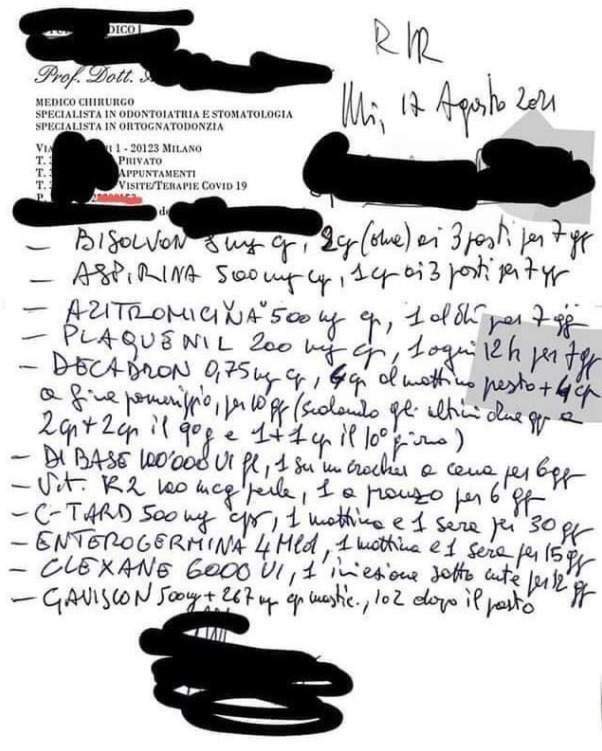 DICO
Prof. Dott.
R/R
MEDICO CHIRURGO
SPECIALISTA IN ODONTOIATRIA E STOMATOLOGIA
SPECIALISTA IN ORTOGNATODONZIA
Mi, 17 Agosto 2021
1 - 20123 MILANO
T. PRIVATO
T. APPUNTAMENTI
T. VISITE/TERAPIE COVID 19
P.
- BISOLVON 8 mg cp, 2 cp (due) ai 3 pasti per 7 gg
- ASPIRINA 500 mg cp, 1 cp ai 3 pasti per 7 gg
- AZITROMICINA 500 mg cp, 1 al dì per 7 gg
- PLAQUENIL 200 mg cp, 1 ogni 12 h per 7 gg
- DECADRON 0,75 mg cp, 4 cp al mattino presto + 4 cp
a fine pomeriggio, per 10 gg (scalando gli ultimi due gg a
2 cp + 2 cp il 9° g e 1 + 1 cp il 10° giorno)
- DIBASE 100'000 UI fl, 1 su un crocker a cena per 6 gg
- Vit. K2 100 mcg perle, 1 a pranzo per 6 gg
- C-TARD 500 mg cps, 1 mattina e 1 sera per 30 gg
- ENTEROGERMINA 4 Mld, 1 mattina e 1 sera per 15 gg
- CLEXANE 6000 UI, 1 iniezione sotto cute per 12 gg
- GAVISCON 500 mg + 267 mg cp mastic., 1 o 2 dopo il pasto